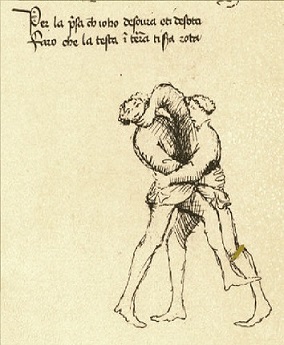 Per la p̃sa ch io ho desoura e ti desota
Faro che la testa ĩ tẽra ti sia rota